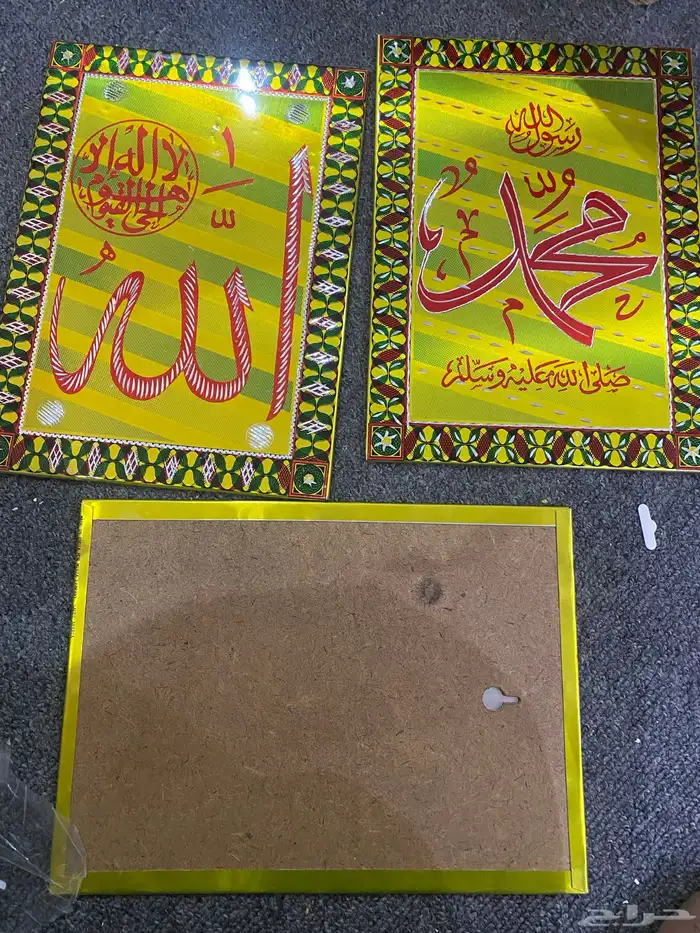 لا إله إلا
هو الحي القيوم
الله
رسول الله
محمد
صلى الله عليه وسلم
حراج